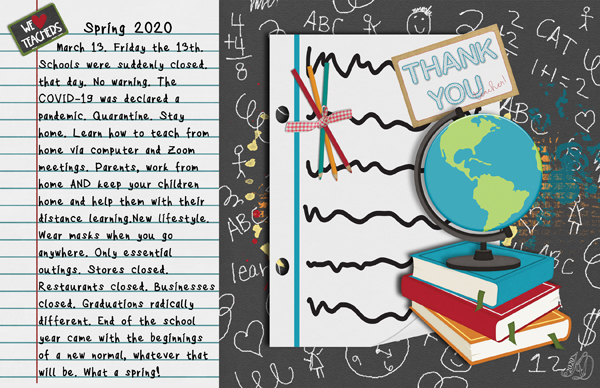 WE
TEACHERS
Spring 2020
March 13. Friday the 13th.
Schools were suddenly closed
that day. No warning. The
COVID-19 was declared a
pandemic. Quarantine. Stay
home. Learn how to teach from
home via computer and Zoom
meetings. Parents, work from
home AND keep your children
home and help them with their
distance learning.New lifestyle.
Wear masks when you go
anywhere. Only essential
outings. Stores closed.
Restaurants closed. Businesses
closed. Graduations radically
different. End of the school
year came with the beginnings
of a new normal, whatever that
will be. What a spring!
4
+4
8
ABC
2
CAT
1+1=2
THANK
YOU
ABC
ABC
lear
ABC
123
12